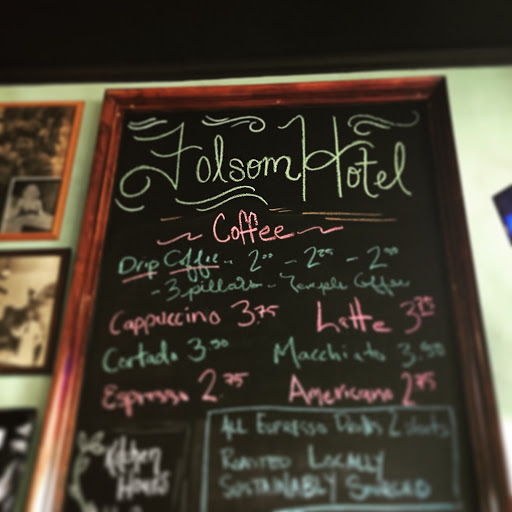 Folsom Hotel
~ Coffee ~
Drip Coffee - 2.00 - 2.25 - 2.50
- 3 pillars - Temple Coffee
Cappuccino 3.75 Latte 3.75
Cortado 3.50 Macchiato 3.50
Espresso 2.75 Americano 2.75
All Espresso Drinks 2 shots
Roasted Locally
Sustainably Sourced
Kitchen
Hours